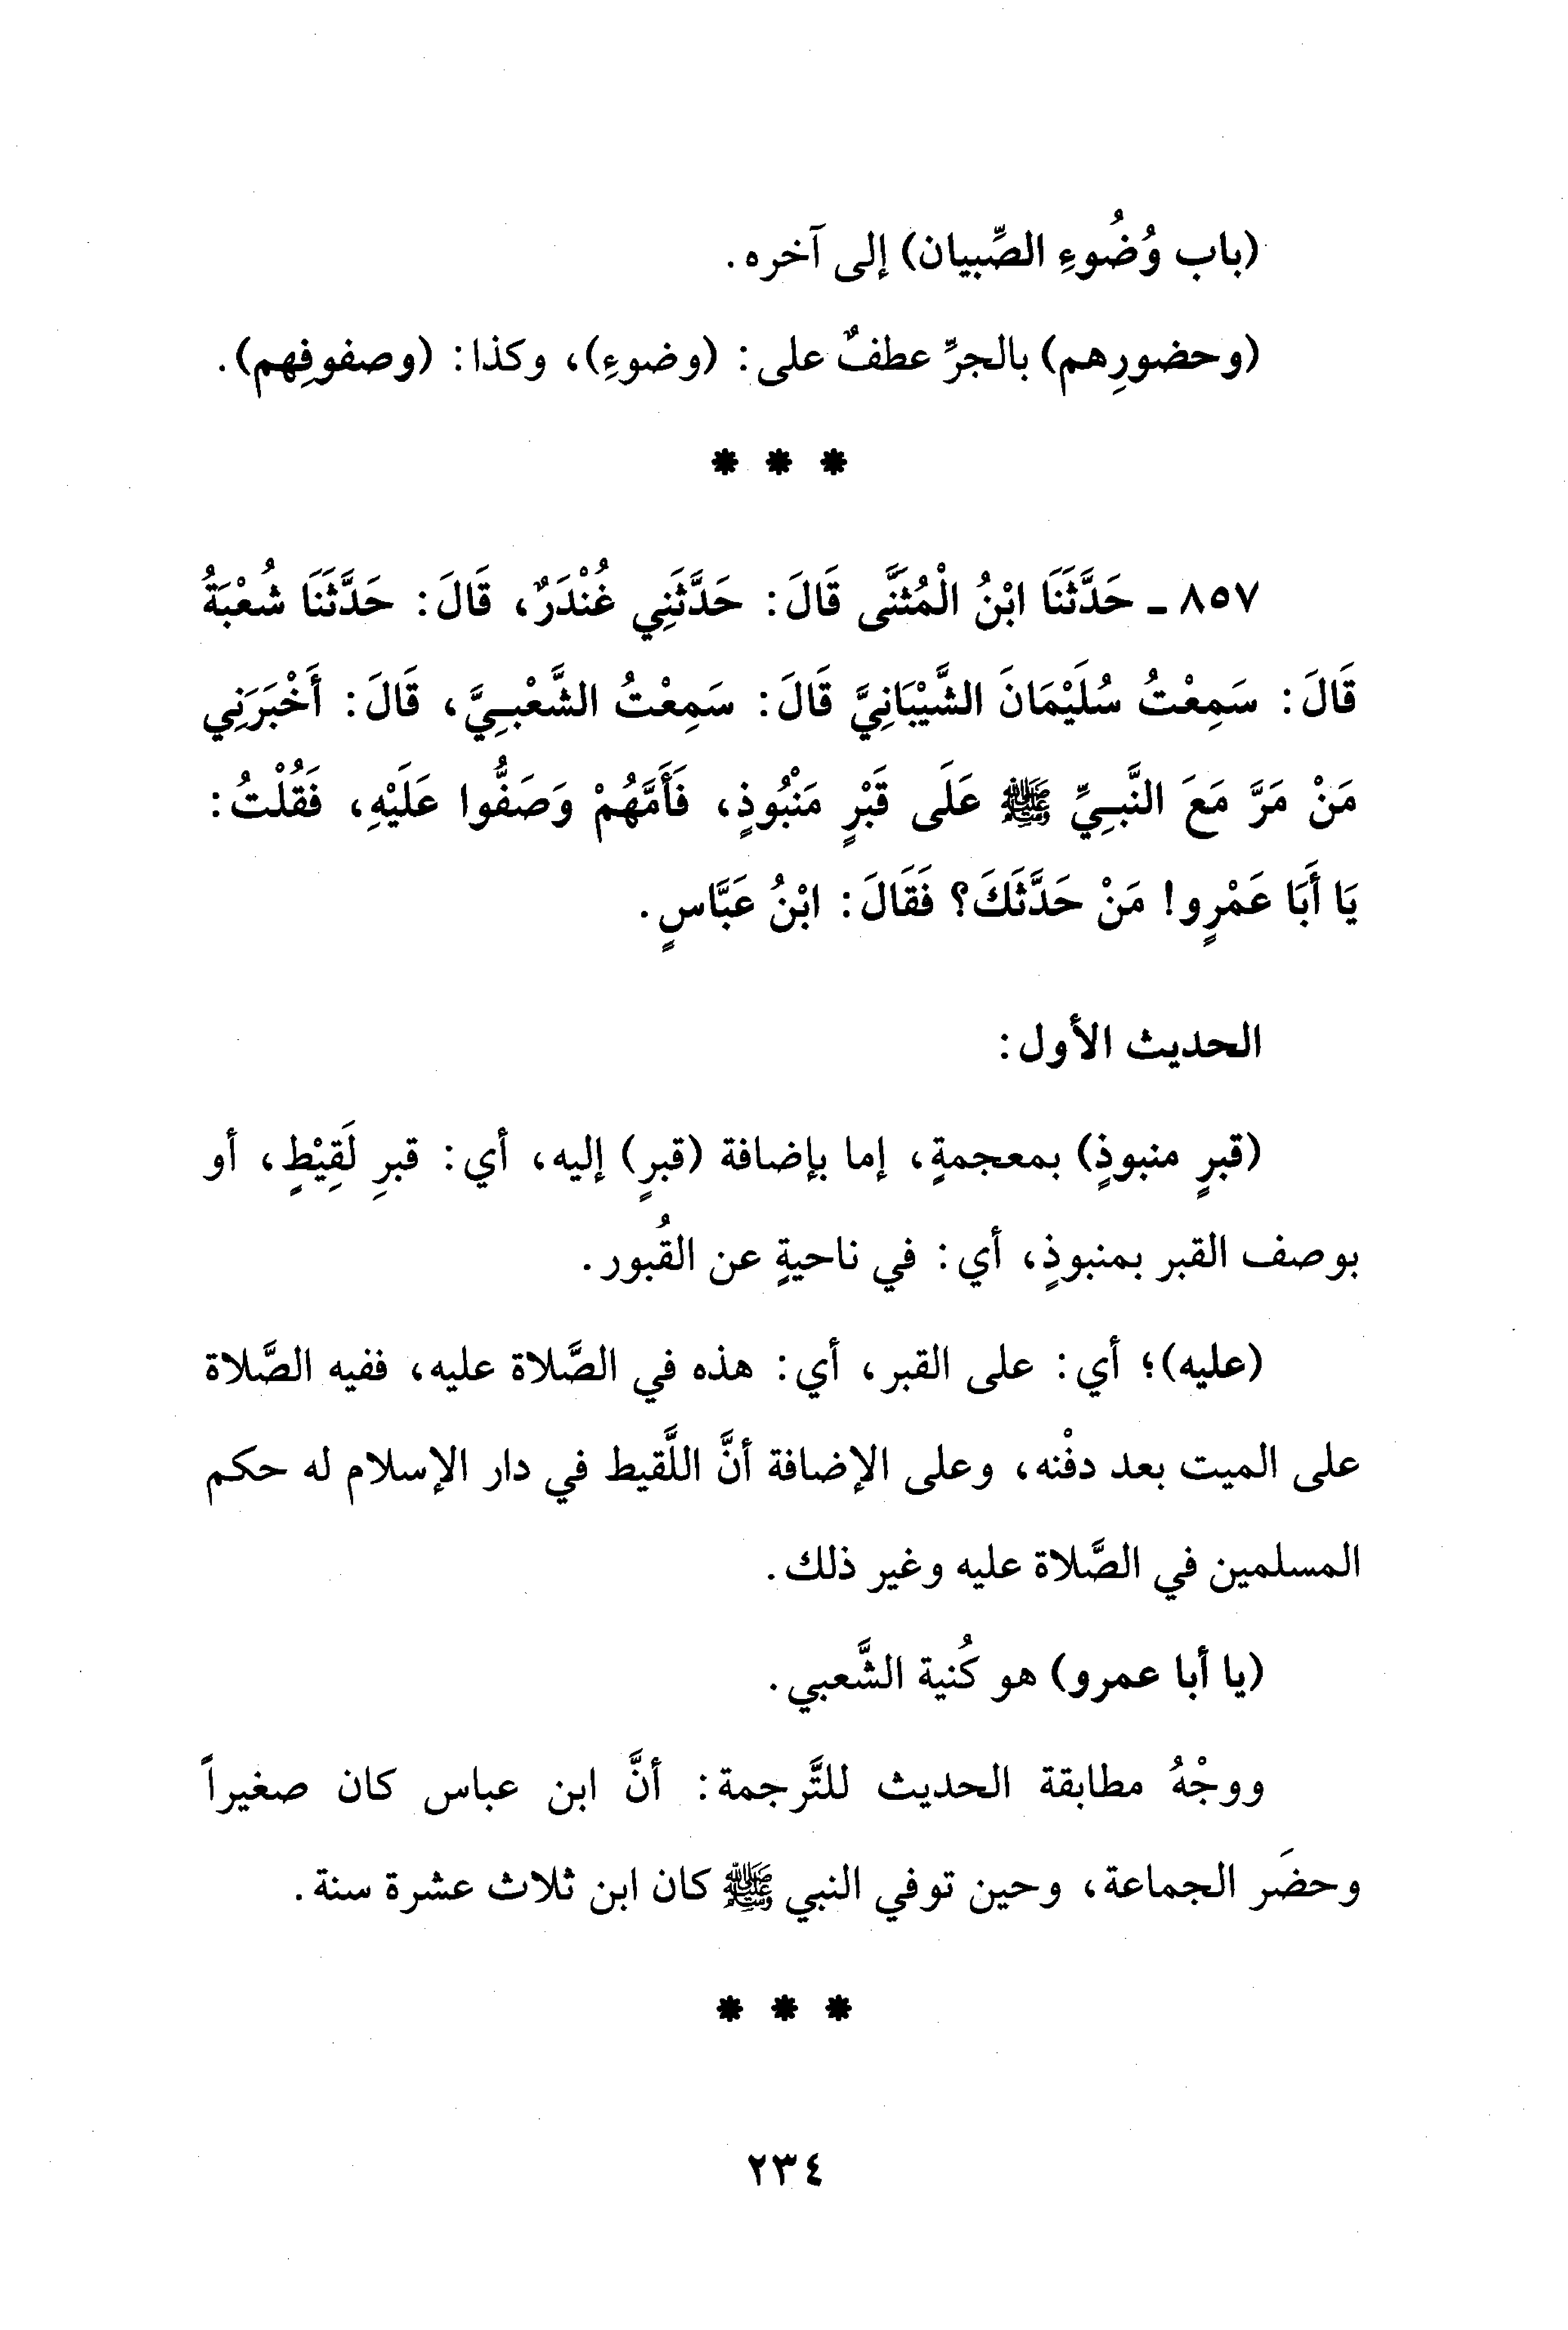 (باب وُضُوءِ الصِّبيان) إلى آخره.
(وحضورِهم) بالجرِّ عطفٌ على: (وضوءِ)، وكذا: (وصفوفِهم).
* * *
٨٥٧ - حَدَّثَنَا ابْنُ الْمُثَنَّى قَالَ: حَدَّثَنِي غُنْدَرٌ، قَالَ: حَدَّثَنَا شُعْبَةُ
قَالَ: سَمِعْتُ سُلَيْمَانَ الشَّيْبَانِيَّ قَالَ: سَمِعْتُ الشَّعْبِيَّ، قَالَ: أَخْبَرَنِي
مَنْ مَرَّ مَعَ النَّبِيِّ ﷺ عَلَى قَبْرٍ مَنْبُوذٍ، فَأَمَّهُمْ وَصَفُّوا عَلَيْهِ، فَقُلْتُ:
يَا أَبَا عَمْرٍو! مَنْ حَدَّثَكَ؟ فَقَالَ: ابْنُ عَبَّاسٍ.
الحديث الأول:
(قبرٍ منبوذٍ) بمعجمةٍ، إما بإضافة (قبرٍ) إليه، أي: قبرِ لَقِيْطٍ، أو
بوصف القبر بمنبوذٍ، أي: في ناحيةٍ عن القُبور.
(عليه)؛ أي: على القبر، أي: هذه في الصَّلاة عليه، ففيه الصَّلاة
على الميت بعد دفْنه، وعلى الإضافة أنَّ اللَّقيط في دار الإسلام له حكم
المسلمين في الصَّلاة عليه وغير ذلك.
(يا أبا عمرو) هو كُنية الشَّعبي.
ووجْهُ مطابقة الحديث للتَّرجمة: أنَّ ابن عباس كان صغيراً
وحضَر الجماعة، وحين توفي النبي ﷺ كان ابن ثلاث عشرة سنة.
* * *
٢٣٤